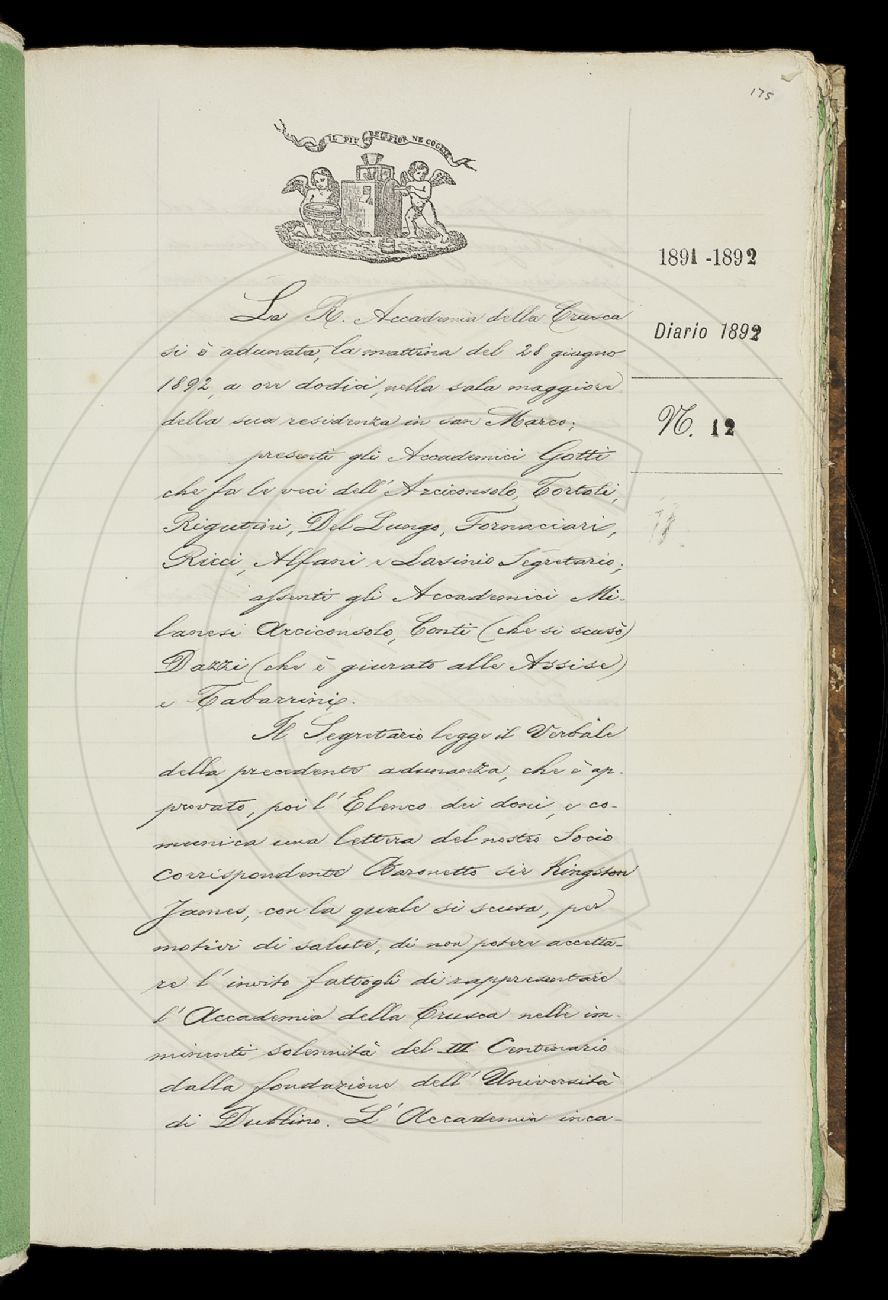 175
IL PIÙ BEL FIOR NE COGLIE
1891-1892
Diario 1892
N. 12
La R. Accademia della Crusca
si è adunata, la mattina del 28 giugno
1892, a ore dodici, nella sala maggiore
della sua residenza in san Marco;
presenti gli Accademici Gotti
che fa le veci dell'Arciconsolo, Tortoli,
Rigutini, Del Lungo, Fornaciari,
Ricci, Alfani e Lasinio Segretario;
assenti gli Accademici Mi-
lanesi Arciconsolo, Conti (che si scusò)
Dazzi (che è giurato alle Assise)
e Tabarrini.
Il Segretario legge il Verbale
della precedente adunanza, che è ap-
provato, poi l'Elenco dei doni, e co-
munica una lettera del nostro Socio
corrispondente Baronetto sir Kingston
James, con la quale si scusa, per
motivi di salute, di non potere accetta-
re l'invito fattogli di rappresentare
l'Accademia della Crusca nelle im-
minenti solennità del III Centenario
dalla fondazione dell'Università
di Dublino. L'Accademia inca-